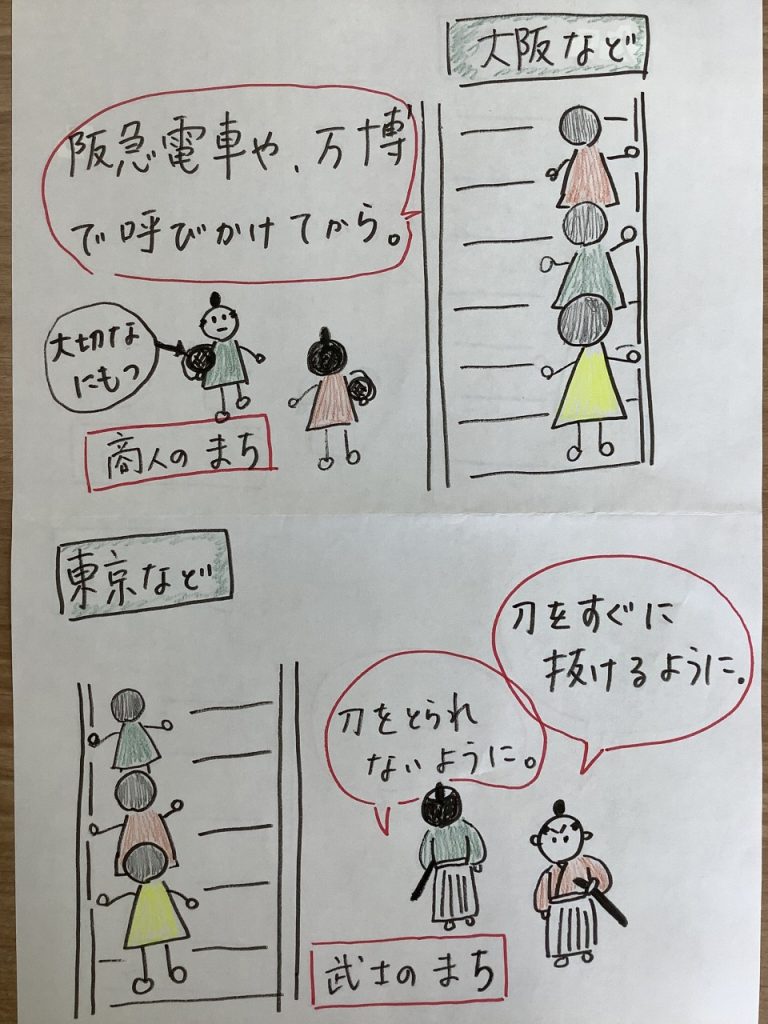 大阪など
阪急電車や、万博
で呼びかけてから。
大切な
にもつ
商人のまち
東京など
刀をすぐに
抜けるように。
刀をとられ
ないように。
武士のまち